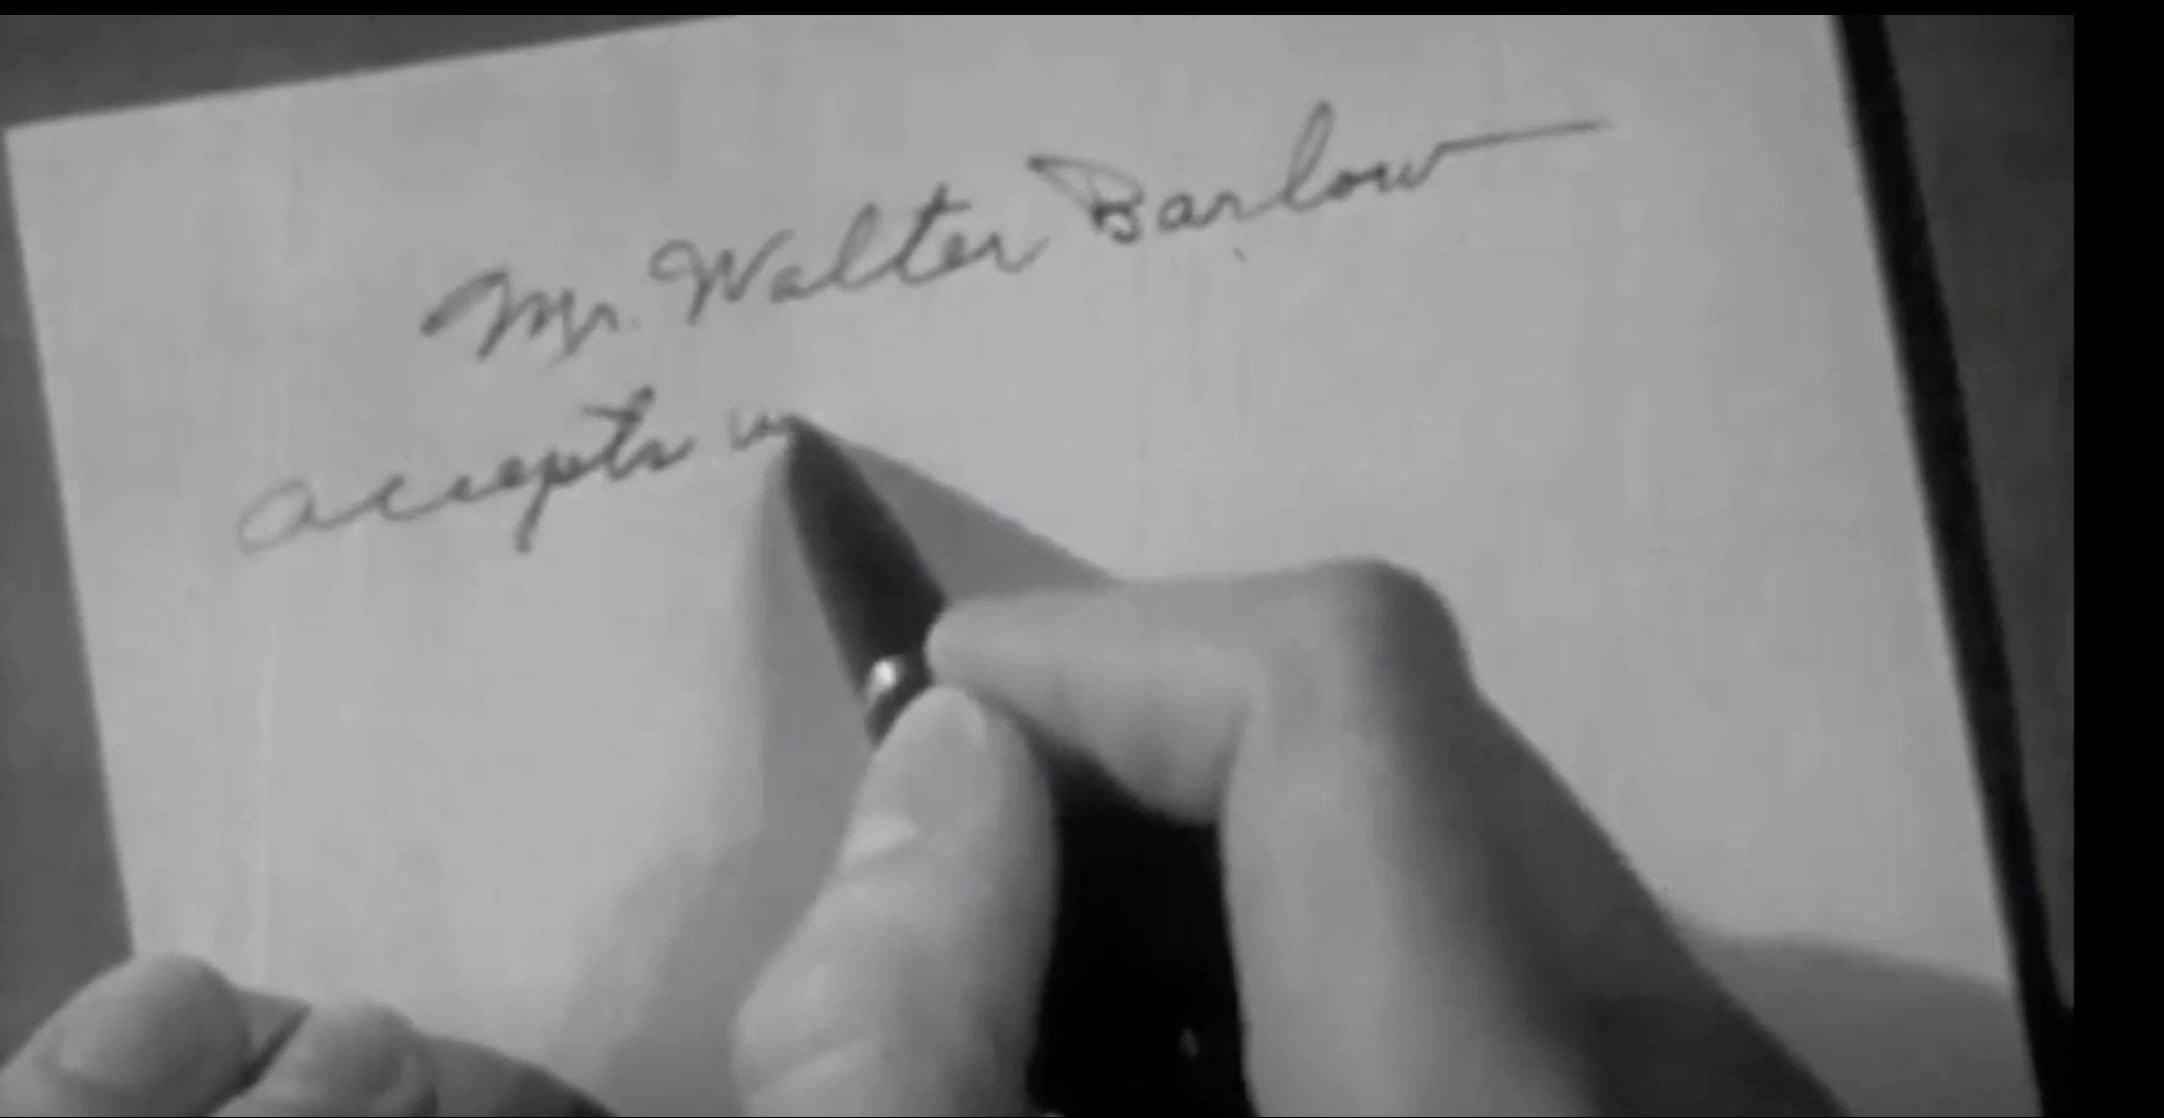 Mr. Walter Barlow
accepts w